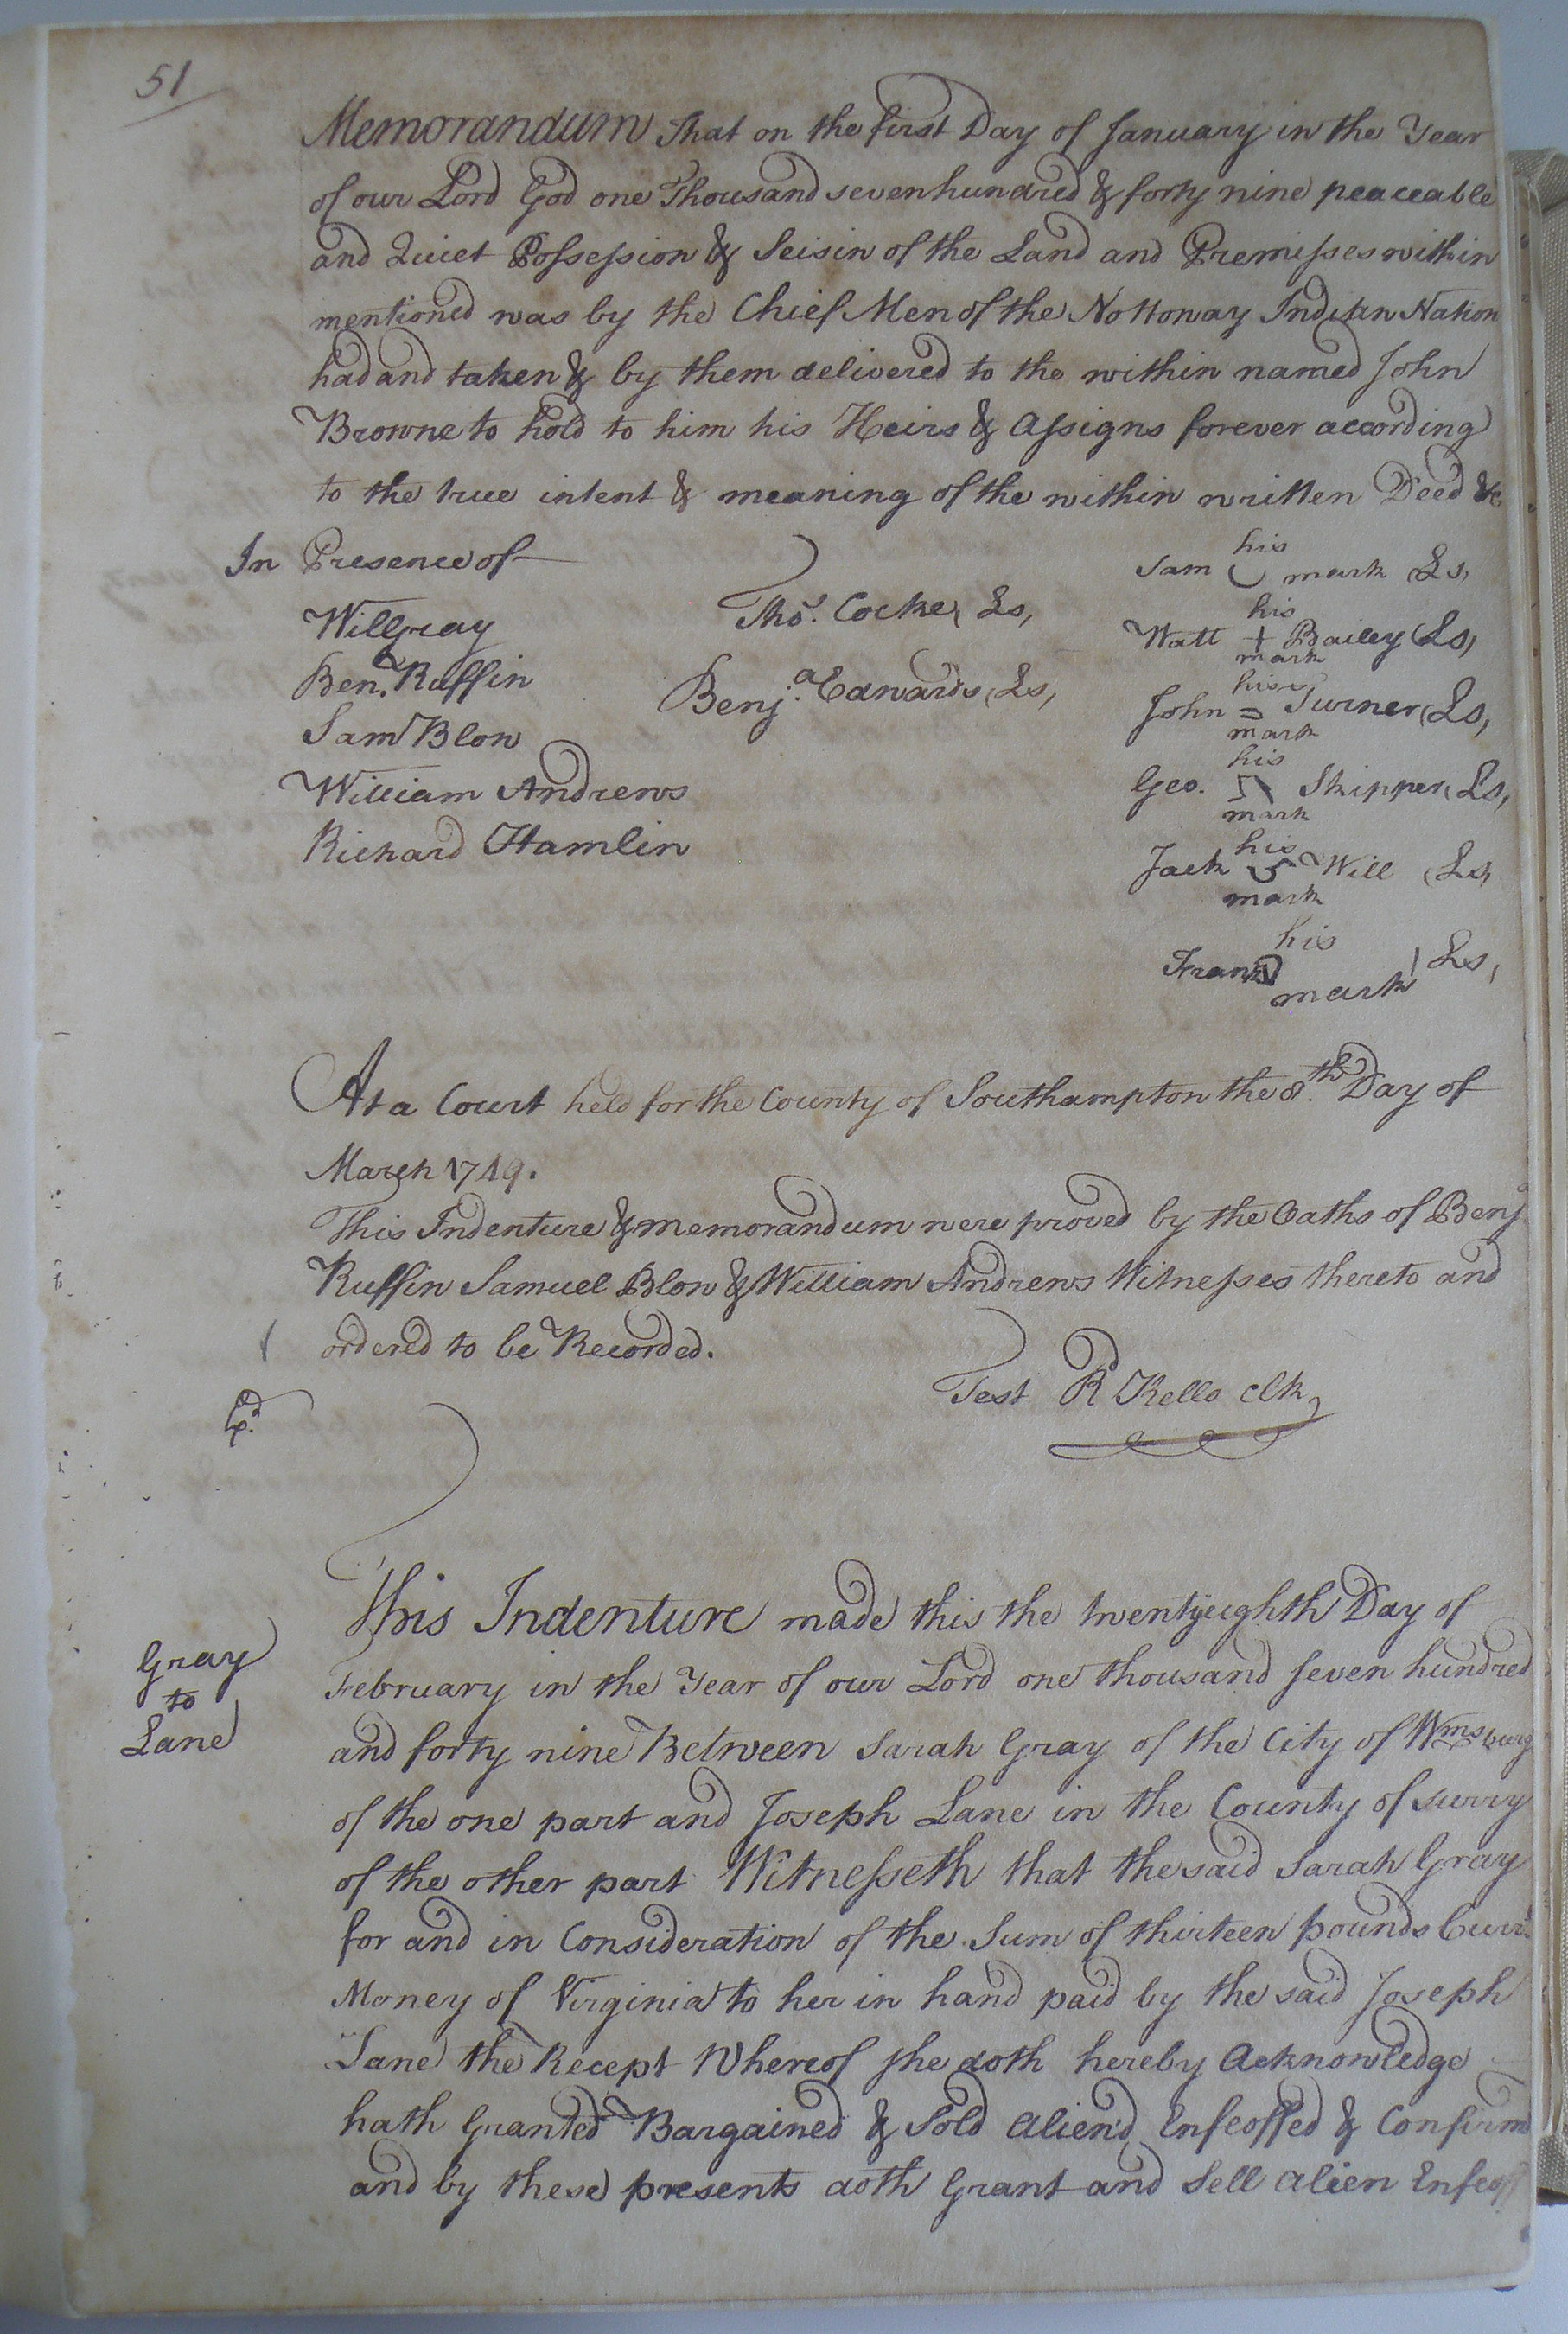 51
Memorandum That on the first Day of January in the Year
of our Lord God one Thousand seven hundred & forty nine peaceable
and Quiet Possession & Seisin of the Land and Premisses within
mentioned was by the Chief Men of the Nottoway Indian Nation
had and taken & by them delivered to the within named John
Browne to hold to him his Heirs & Assigns forever according
to the true intent & meaning of the within written Deed &c
In Presence of
Will Gray
Ben. Ruffin
Sam Blow
William Andrews
Richard Hamlin
Thos. Cocke, Ls,
Benja. Edwards, Ls,
his
Sam mark Ls,
his
Watt + Bailey Ls,
mark
his
John = Turner, Ls,
mark
his
Geo. Skipper, Ls,
mark
his
Jack Will Ls,
mark
his
Frank Ls,
mark
At a Court held for the County of Southampton the 8th. Day of
March 1749.
This Indenture & memorandum were proved by the Oaths of Benj
Ruffin Samuel Blow & William Andrews Witnesses thereto and
ordered to be Recorded.
Test R Kello Clk
This Indenture made this the twentyeighth Day of
Gray
to
Lane
February in the Year of our Lord one thousand seven hundred
and forty nine Between Sarah Gray of the City of Wmsburg
of the one part and Joseph Lane in the County of Surry
of the other part Witnesseth that the said Sarah Gray
for and in Consideration of the Sum of thirteen pounds Curr.
Money of Virginia to her in hand paid by the said Joseph
Lane the Recept Whereof she doth hereby Acknowledge
hath Granted Bargained & Sold Alien'd Enfeoffed & Confirmd
and by these presents doth Grant and Sell Alien Enfeoff